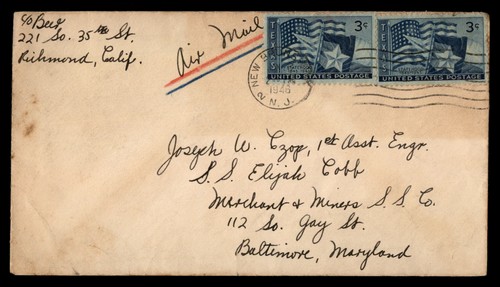 c/o Beer
221 So. 35th St.
Richmond, Calif.
Air Mail
TEXAS 3¢
UNITED STATES POSTAGE
TEXAS 3¢
UNITED STATES POSTAGE
NEW
1946
2 N. J.
Joseph W. Czop, 1st Asst. Engr.
S. S. Elijah Cobb
Merchant & Miners S. S. Co.
112 So. Gay St.
Baltimore, Maryland